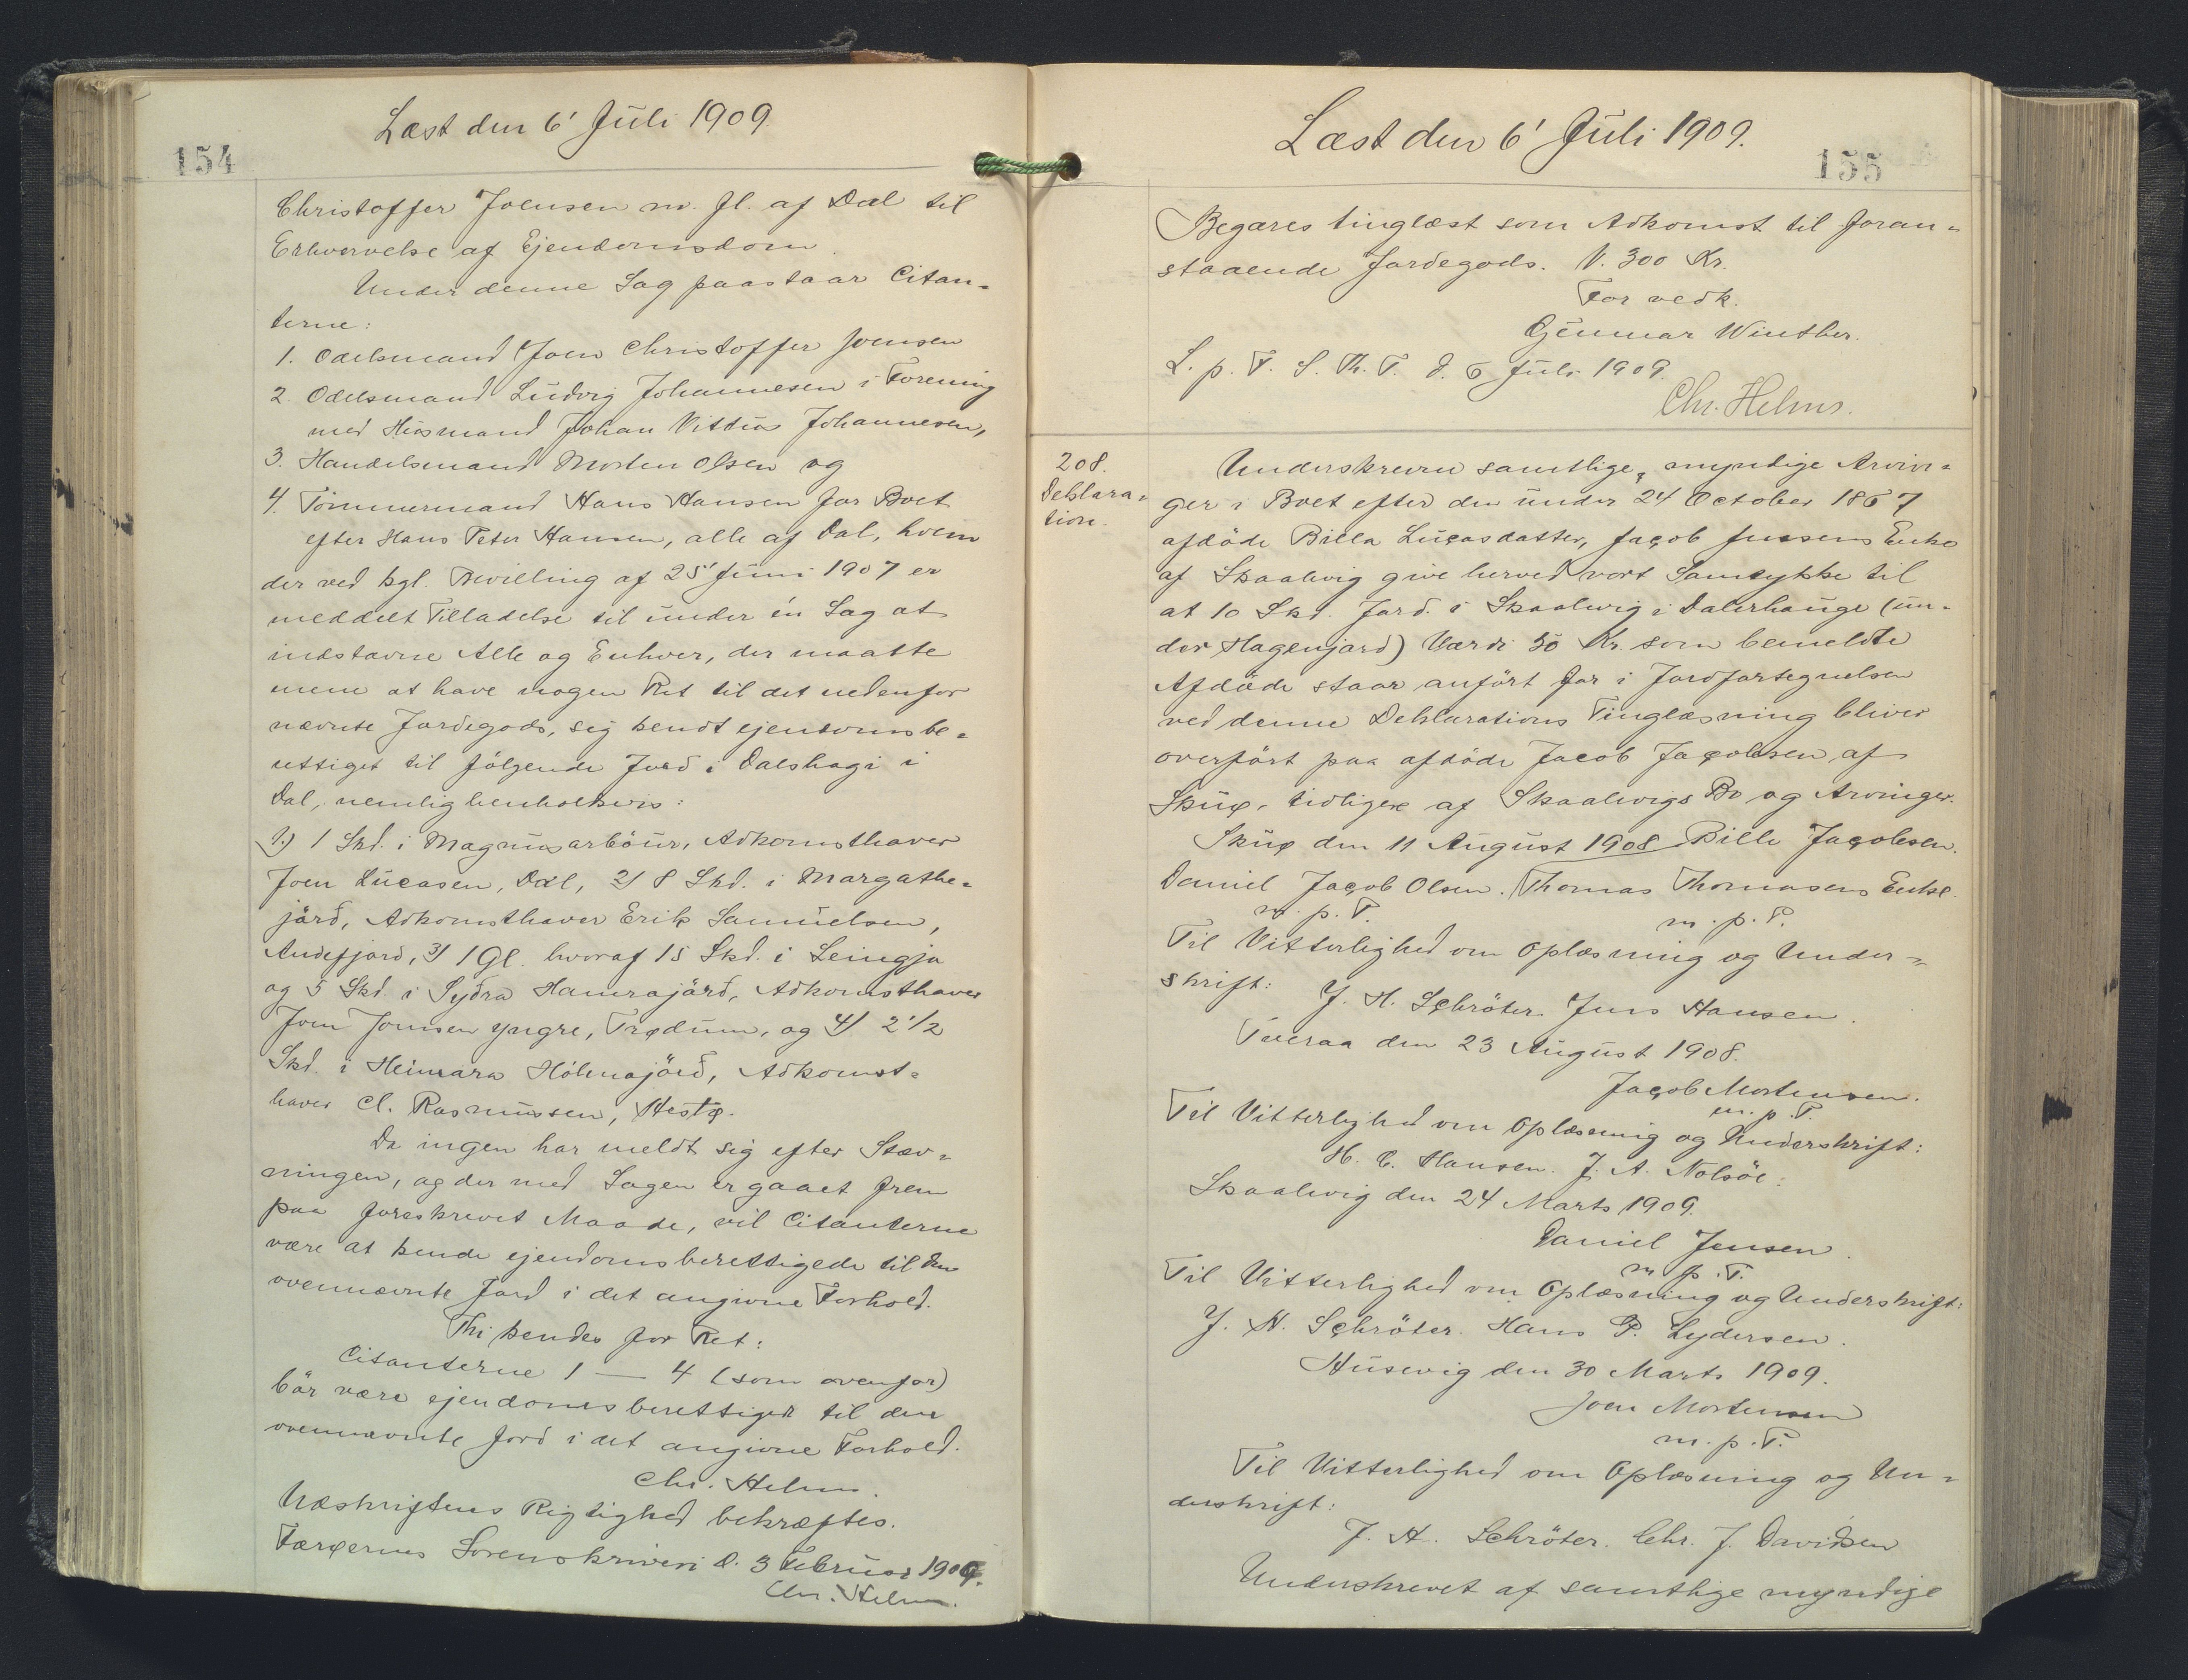 154
Læst den 6' Juli 1909
Christoffer Joensen m. fl. af Dal til
Erhvervelse af Ejendomsdom
Under denne Sag paastaar Citan-
terne:
1. Odelsmand Joen Christoffer Joensen
2. Odelsmand Ludvig Johannesen i Forening
med Huusmand Johan Vittus Johannesen,
3. Handelsmand Morten Olsen og
4. Tömmermand Hans Hansen for Boet
efter Hans Peter Hansen, alle af Dal, hvem
der ved kgl. Bevilling af 25' Juni 1907 er
meddelt Tilladelse til under én Sag at
indstævne Alle og Enhver, der maatte
mene at have nogen Ret til det nedenfor
nævnte Jordegods, sig kendt ejendomsbe-
rettiget til fölgende Jord i Dalshagi i
Dal, nemlig henholdsvis:
1.) 1 Skd. i Magnusarböur, Adkomsthaver
Joen Lucasen, Dal, 2) 8 Skd. i Margathe-
jörd, Adkomsthaver Erik Samuelsen,
Andefjord, 3) 1 Gl. hvoraf 15 Skd. i Leingja
og 5 Skd. i Sydra Hamrajörd, Adkomsthaver
Joen Joensen yngre, Trødum, og 4) 2 1/2
Skd. i Heimara Hólmajörd, Adkomst-
haver Cl. Rasmussen, Hestø.
Da ingen har meldt sig efter Stæv-
ningen, og der med Sagen er gaaet frem
paa foreskrevet Maade, vil Citanterne
være at kende ejendomsberettigede til den
ovennævnte Jord i det angivne Forhold.
Thi kendes for Ret:
Citanterne 1 — 4 (som ovenfor)
bör være ejendomsberettiget til den
ovennævnte Jord i det angivne Forhold.
Chr. Helms.
Udskriftens Rigtighed bekræftes.
Færøernes Sorenskriveri d. 3 Februar 1909.
Chr. Helms.
Læst den 6' Juli 1909.
155
Begæres tinglæst som Adkomst til foran-
staaende Jordegods. V. 300 Kr.
For vedk.
Gunnar Winther.
L. p. F. S. Th. T. d. 6 Juli 1909.
Chr. Helms.
208.
Deklara-
tion.
Underskrevne samtlige, myndige Arvin-
ger i Boet efter den under 24 October 1867
afdöde Billa Lucasdatter, Jacob Jensens Enke
af Skaalevig give herved vort Samtykke til
at 10 Skd. Jord i Skaalevig i Dalerhauge (un-
der Hagenjord) Værdi 50 Kr. som bemeldte
Afdöde staar anfört for i Jordfortegnelsen
ved denne Deklarations Tinglæsning bliver
overfört paa afdöde Jacob Jacobsen af
Skuø, tidligere af Skaalevigs Bo og Arvinger.
Skuø den 11 August 1908 Bille Jacobsen.
Daniel Jacob Olsen. Thomas Thomasens Enke
m. p. P. m. p. P.
Til Vitterlighed om Oplæsning og Under-
skrift: J. H. Schröter. Jens Hansen.
Tveraa den 23 August 1908.
Jacob Mortensen.
m. p. P.
Til Vitterlighed om Oplæsning og Underskrift:
H. C. Hansen. J. A. Nolsöe.
Skaalevig den 24 Marts 1909.
Daniel Jensen.
m. p. P.
Til Vitterlighed om Oplæsning og Underskrift:
J. H. Schröter. Hans P. Lydersen.
Husevig den 30 Marts 1909.
Joen Mortensen
m. p. P.
Til Vitterlighed om Oplæsning og Un-
derskrift:
J. H. Schröter. Chr. J. Davidsen
Underskrevet af samtlige myndige